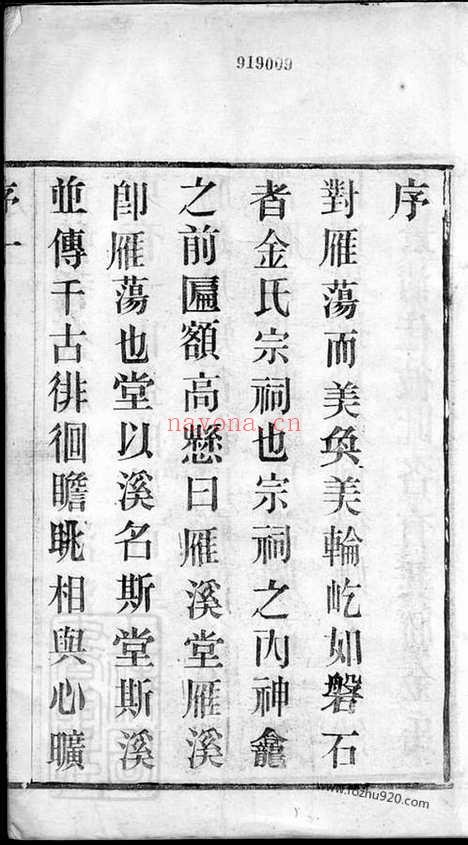 919009
序
對雁蕩而美奐美輪屹如磐石
者金氏宗祠也宗祠之內神龕
之前匾額高懸曰雁溪堂雁溪
卽雁蕩也堂以溪名斯堂斯溪
並傳千古徘徊瞻眺相與心曠
序 一
nayona.cn
www.fozhu920.com